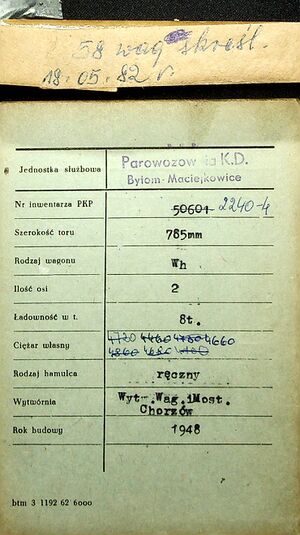 58 wag skreśl.
18.05.82 r
Jednostka służbowa Parowozownia K.D.
Bytom-Maciejkowice
Nr inwentarza PKP 50601 2240-4
Szerokość toru 785mm
Rodzaj wagonu Wh
Ilość osi 2
Ładowność w t. 8t.
Ciężar własny 4720 4460 4780 4660
4860 4680
Rodzaj hamulca ręczny
Wytwórnia Wyt-.Wag.iMost.
Chorzów
Rok budowy 1948
btm 3 1192 62 6000